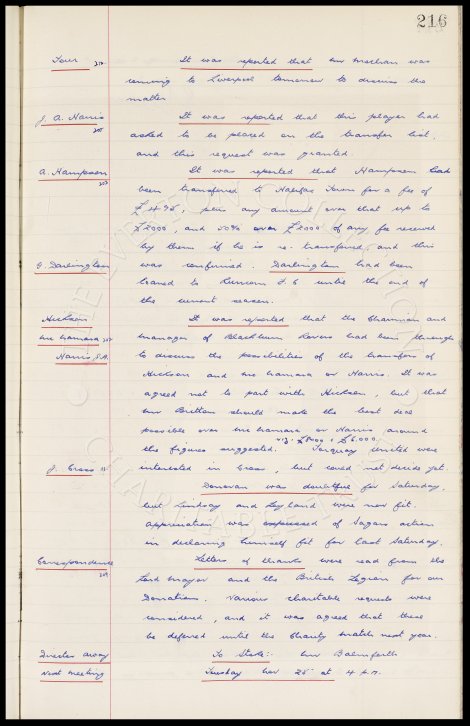 216
Tour 212 It was reported that Mr Meehan was
coming to Liverpool tomorrow to discuss the
matter
J. A. Harris It was reported that this player had
asked to be placed on the transfer list,
and this request was granted.
A. Hampson It was reported that Hampson had
been transferred to Halifax Town for a fee of
any amount over that up to
£2000, and 50% over £2000 of any fee received
by them if he is re-transferred, and this
G. Darlington was confirmed. Darlington had been
loaned to Runcorn F C until the end of
the current season.
Hickson It was reported that the Chairman and
McNamara manager of Blackburn Rovers had been through
Harris J.A. to discuss the possibilities of the transfer of
Hickson and McNamara or Harris. It was
agreed not to part with Hickson, but that
Mr Britton should make the best deal
possible over McNamara or Harris around
viz. £8000 & £6,000
the figures suggested. Torquay United were
J. Grass interested in Grass, but could not decide yet.
Donovan was doubtful for Saturday,
but Lindsay and Leyland were now fit.
Appreciation was expressed of Sagars action
in declaring himself fit for last Saturday.
Correspondence Letters of thanks were read from the
Lord Mayor and the British Legion for our
Donations. Various charitable requests were
considered, and it was agreed that these
be deferred until the Charity Match next year.
Director away To Stoke:- Mr Balmforth
Next Meeting Tuesday Nov 25 at 4 p.m.